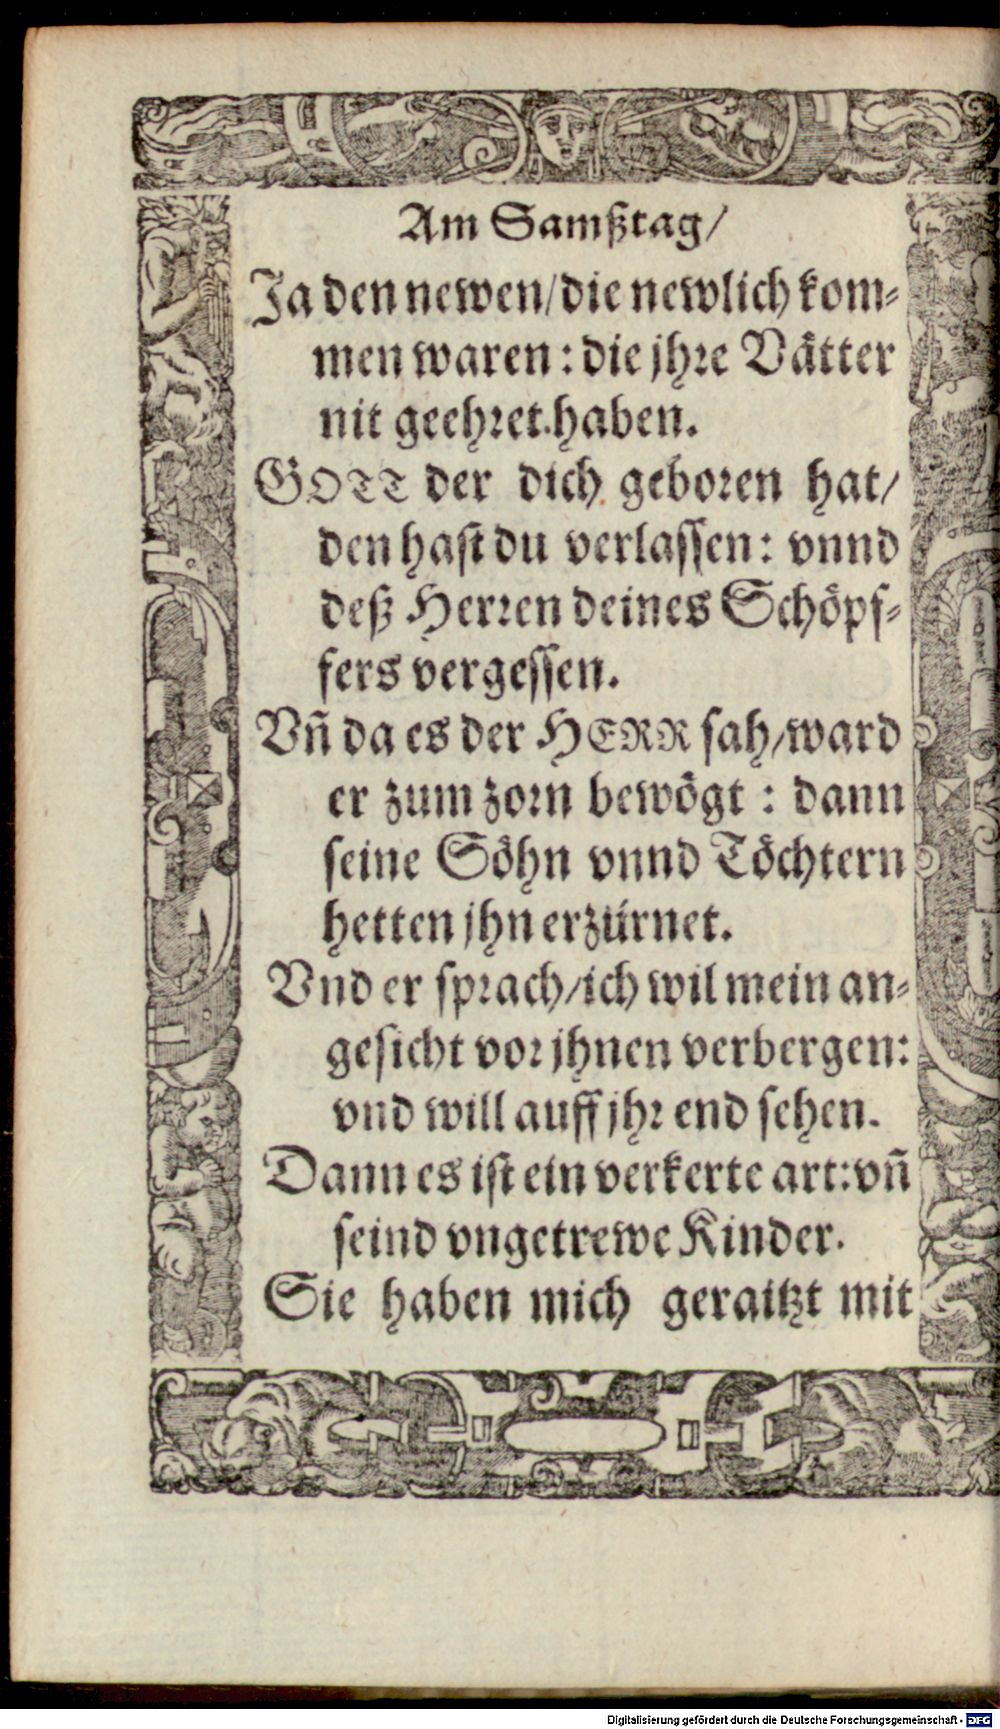 Am Samßtag/
Ja den newen/die newlich kom⸗
men waren: die jhre Vätter
nit geehret haben.
GOTT der dich geboren hat/
den hast du verlassen: vnnd
deß Herren deines Schöpf⸗
fers vergessen.
Vñ da es der HERR sah/ward
er zum zorn bewögt: dann
seine Söhn vnnd Töchtern
hetten jhn erzürnet.
Vnd er sprach/ich wil mein an⸗
gesicht vor jhnen verbergen:
vnd will auff jhr end sehen.
Dann es ist ein verkerte art: vñ
seind vngetrewe Kinder.
Sie haben mich geraitzt mit
Digitalisierung gefördert durch die Deutsche Forschungsgemeinschaft - DFG